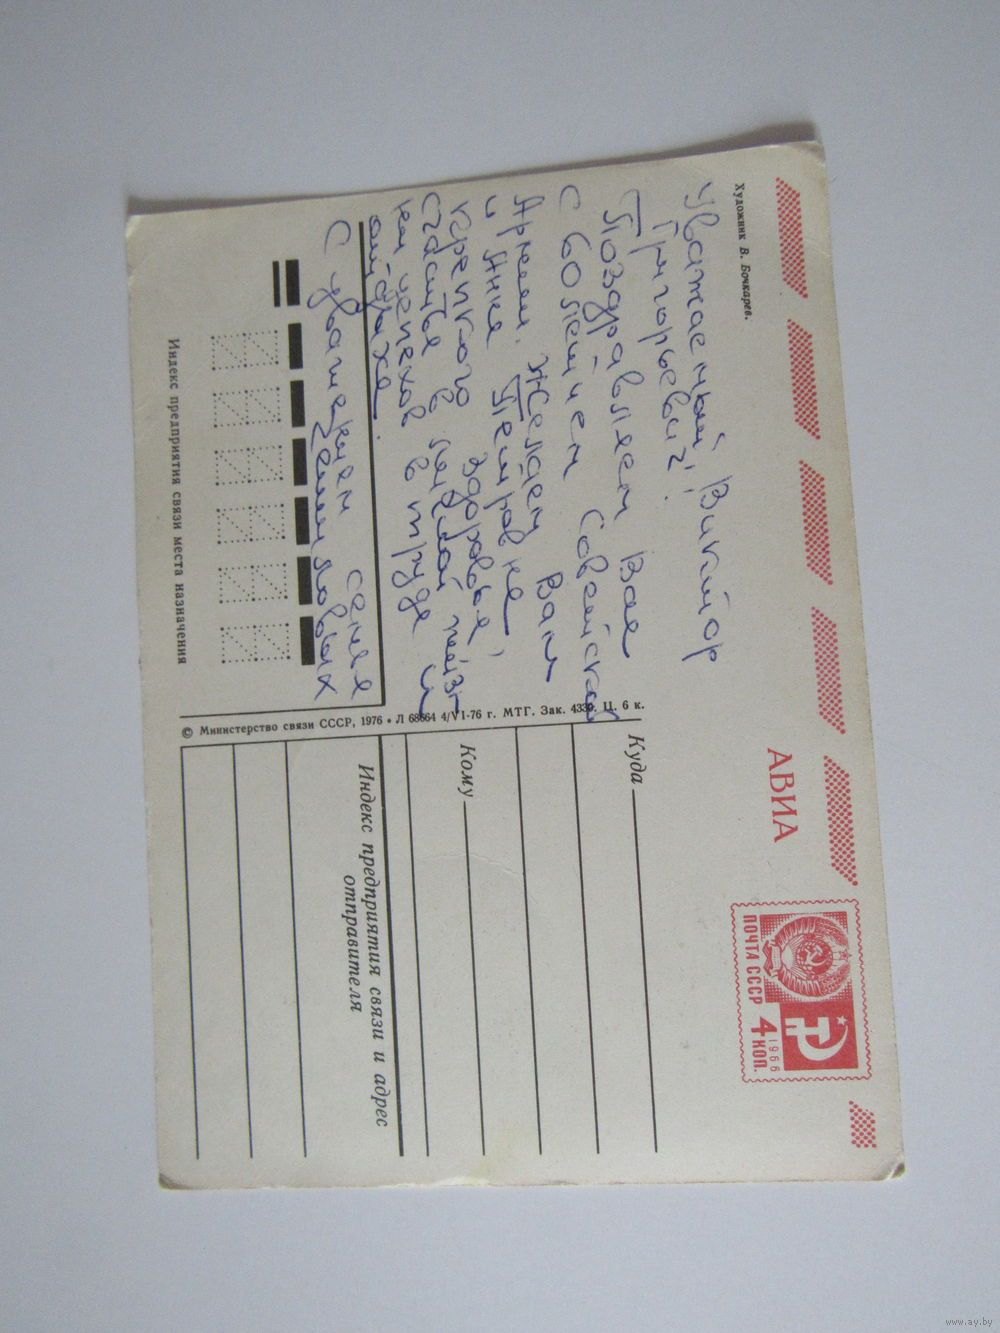 Художник В. Бочкарев.
Уважаемый Виктор
Григорьевич!
Поздравляем Вас
с 60летием Советской
Армии. Желаем Вам
и Анне Петровне
крепкого здоровья,
счастья в личной жиз
ни успехов в труде и
отдыхе.
С уважением семья
Индекс предприятия связи места назначения
© Министерство связи СССР, 1976 • Л 68664 4/VI-76 г. МТГ. Зак. 4330. Ц. 6 к.
АВИА
ПОЧТА СССР 4 КОП.
1966
Куда
Кому
Индекс предприятия связи и адрес
отправителя
www.ay.by